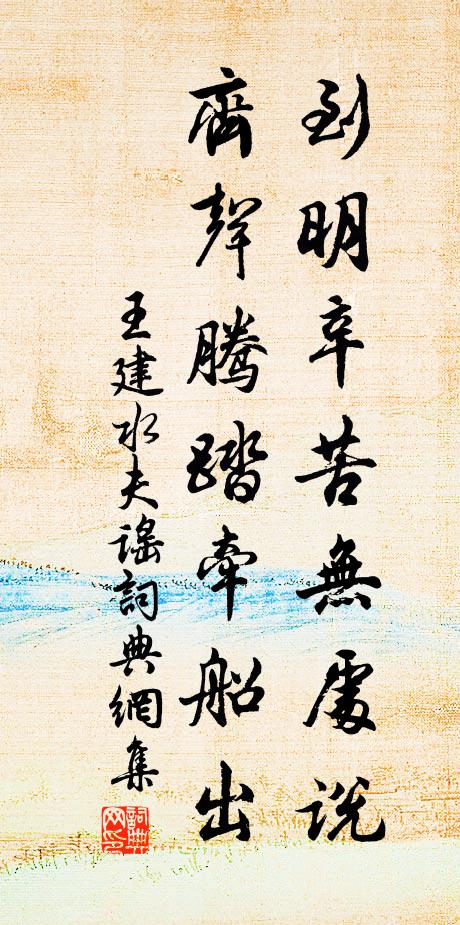 到明辛苦無處說
齊聲騰踏牽船出
王建水夫謠詞典網集
詞典網印